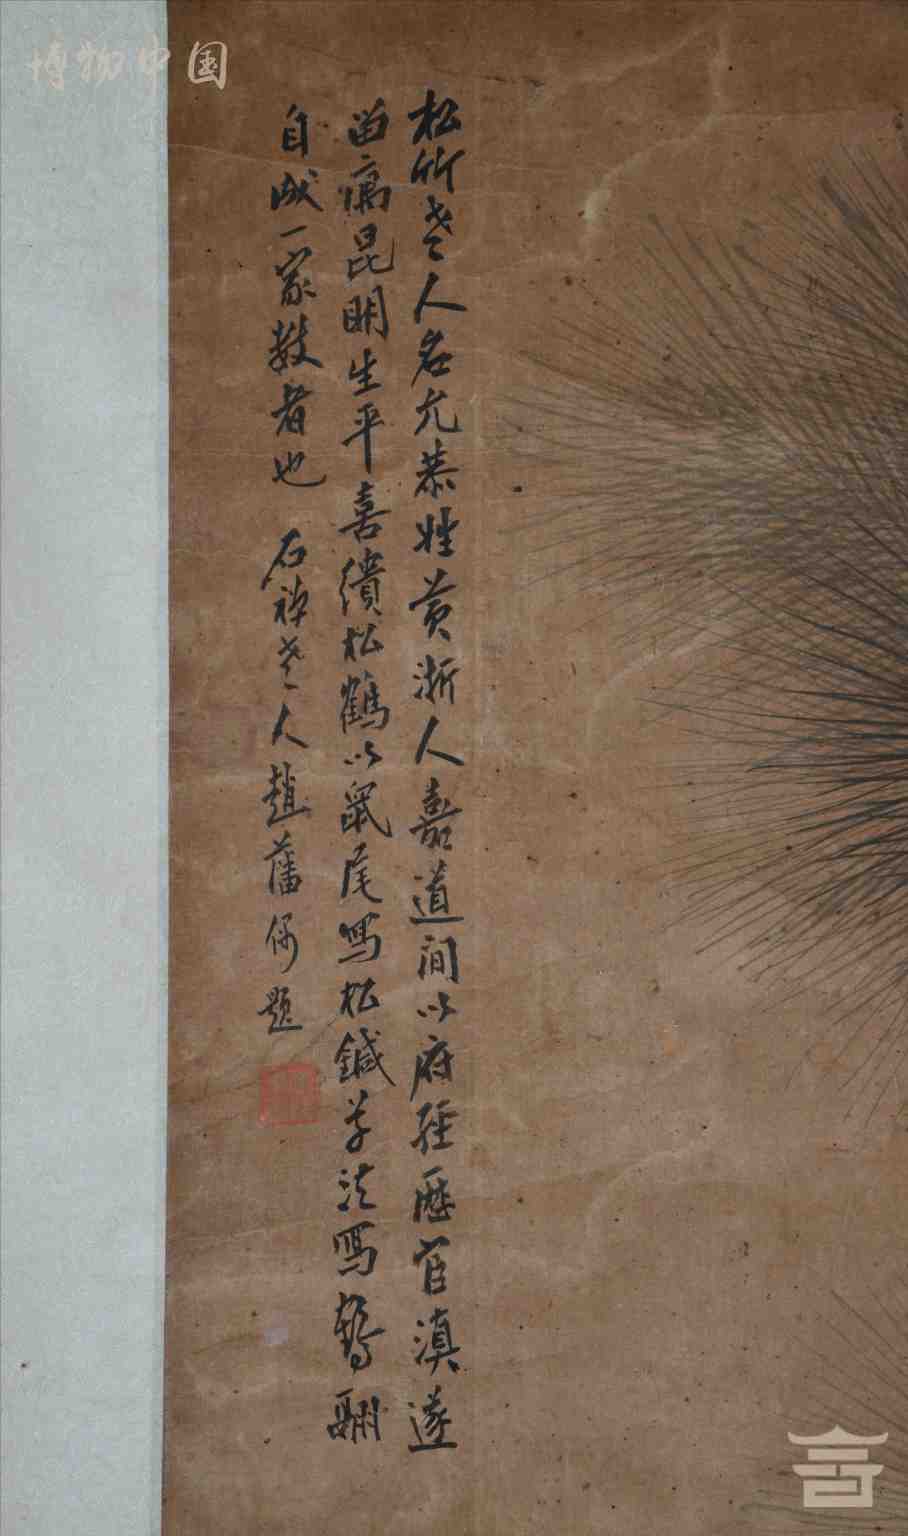 博物中国
松竹老人名允恭姓黄浙人嘉道间以府经历官滇遂
留寓昆明生平喜缋松鹤以鼠尾写松针草法写鹤翮
自成一家数者也 石禅老人赵藩仍题